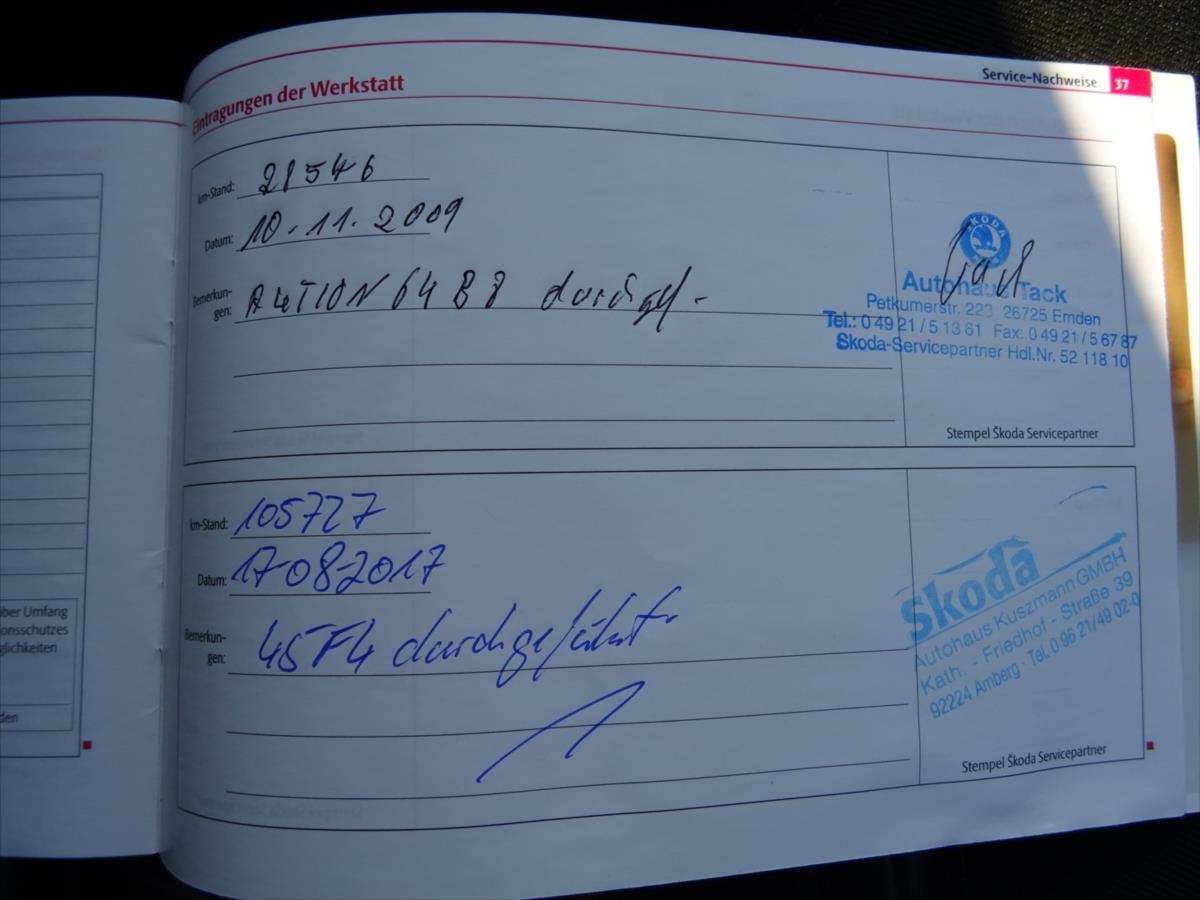 Service-Nachweise 37
Eintragungen der Werkstatt
km-Stand: 21546
Datum: 10.11.2009
Bemerkun-
gen: AKTION 64B8 durchgef.
SKODA
Autohaus Tack
Petkumerstr. 223 26725 Emden
Tel.: 0 49 21 / 5 13 61 Fax: 0 49 21 / 5 67 87
Skoda-Servicepartner Hdl.Nr. 52 118 10
Stempel Škoda Servicepartner
km-Stand: 105727
Datum: 17-08-2017
Bemerkun-
gen: 45F4 durchgeführt
Škoda
Autohaus Kuszmann GMBH
Kath. - Friedhof - Straße 39
92224 Amberg · Tel. 0 96 21/49 02-0
Stempel Škoda Servicepartner
ber Umfang
onsschutzes
glichkeiten
den